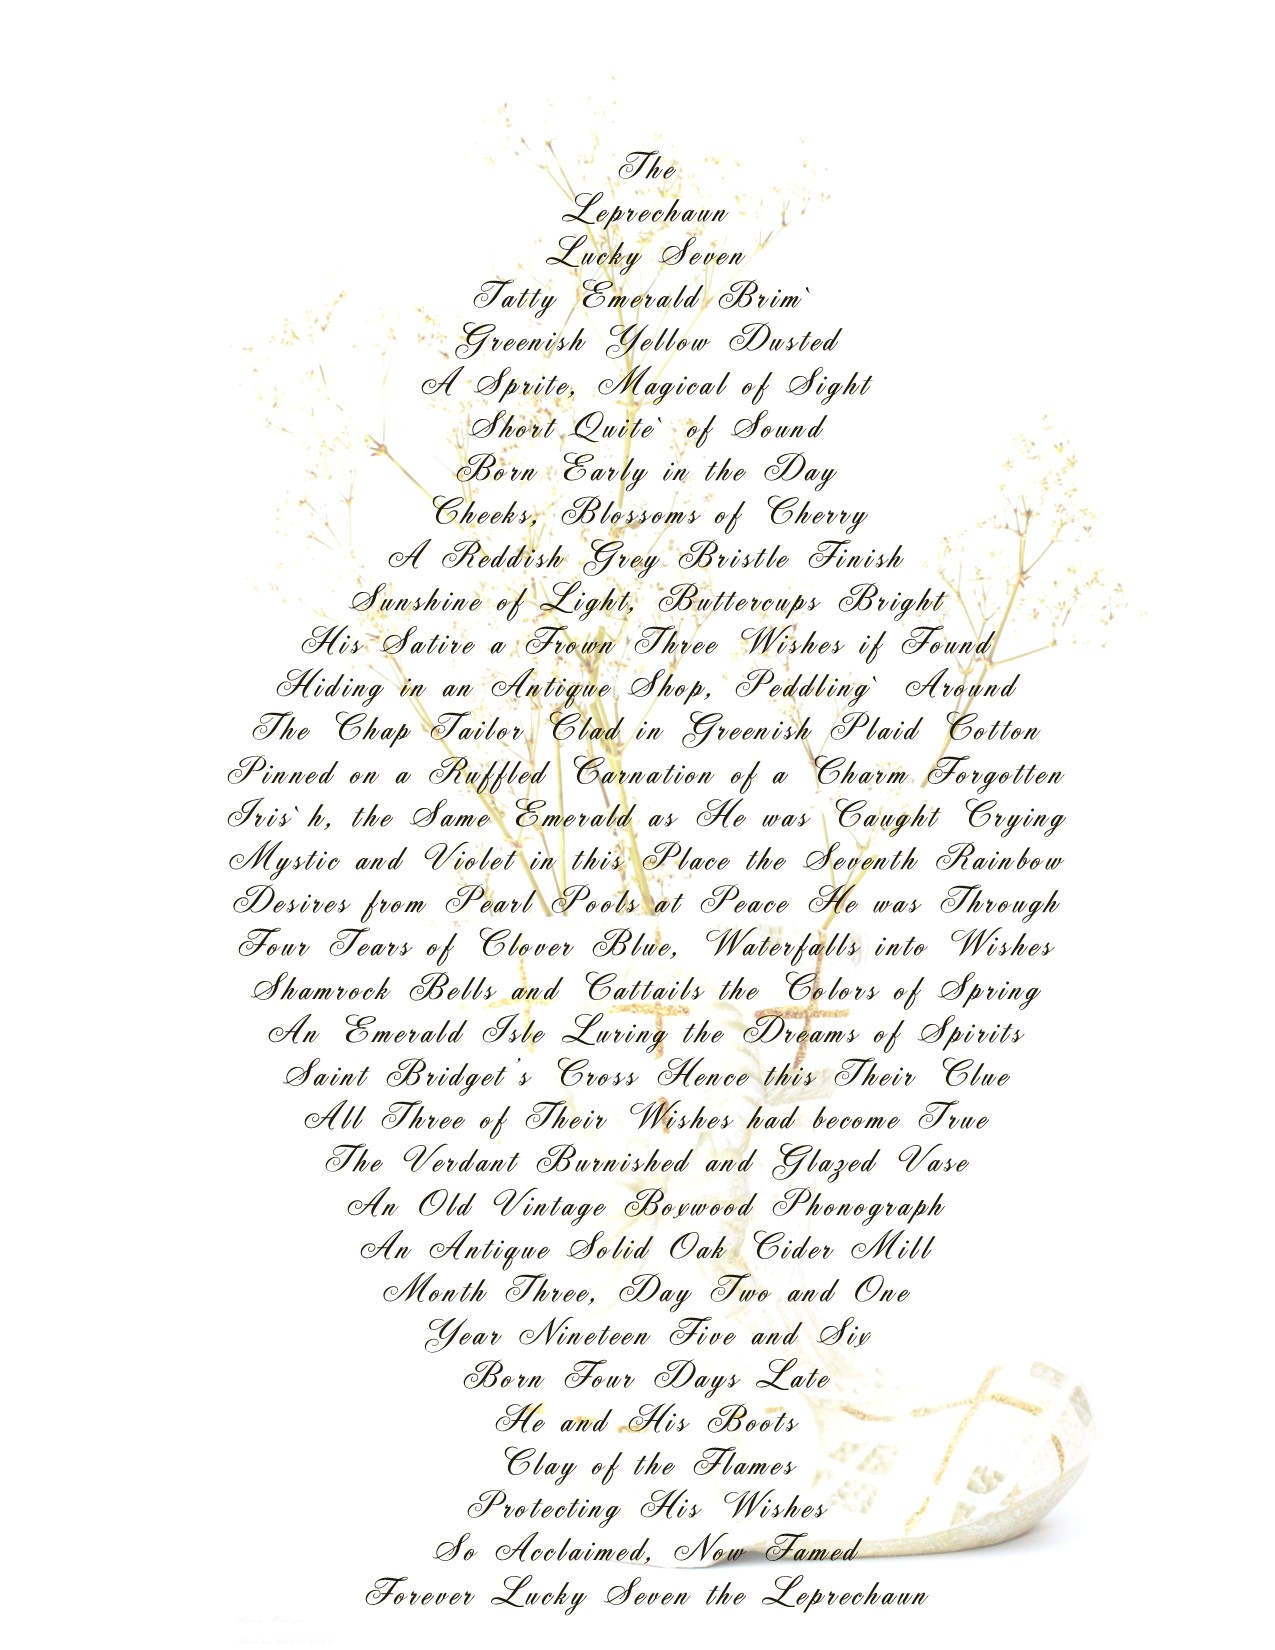 The
Leprechaun
Lucky Seven
Tatty Emerald Brim`
Greenish Yellow Dusted
A Sprite, Magical of Sight
Short Quite` of Sound
Born Early in the Day
Cheeks, Blossoms of Cherry
A Reddish Grey Bristle Finish
Sunshine of Light, Buttercups Bright
His Satire a Frown Three Wishes if Found
Hiding in an Antique Shop, Peddling` Around
The Chap Tailor Clad in Greenish Plaid Cotton
Pinned on a Ruffled Carnation of a Charm Forgotten
Iris`h, the Same Emerald as He was Caught Crying
Mystic and Violet in this Place the Seventh Rainbow
Desires from Pearl Pools at Peace He was Through
Four Tears of Clover Blue, Waterfalls into Wishes
Shamrock Bells and Cattails the Colors of Spring
An Emerald Isle Luring the Dreams of Spirits
Saint Bridget's Cross Hence this Their Clue
All Three of Their Wishes had become True
The Verdant Burnished and Glazed Vase
An Old Vintage Boxwood Phonograph
An Antique Solid Oak Cider Mill
Month Three, Day Two and One
Year Nineteen Five and Six
Born Four Days Late
He and His Boots
Clay of the Flames
Protecting His Wishes
So Acclaimed, Now Famed
Forever Lucky Seven the Leprechaun